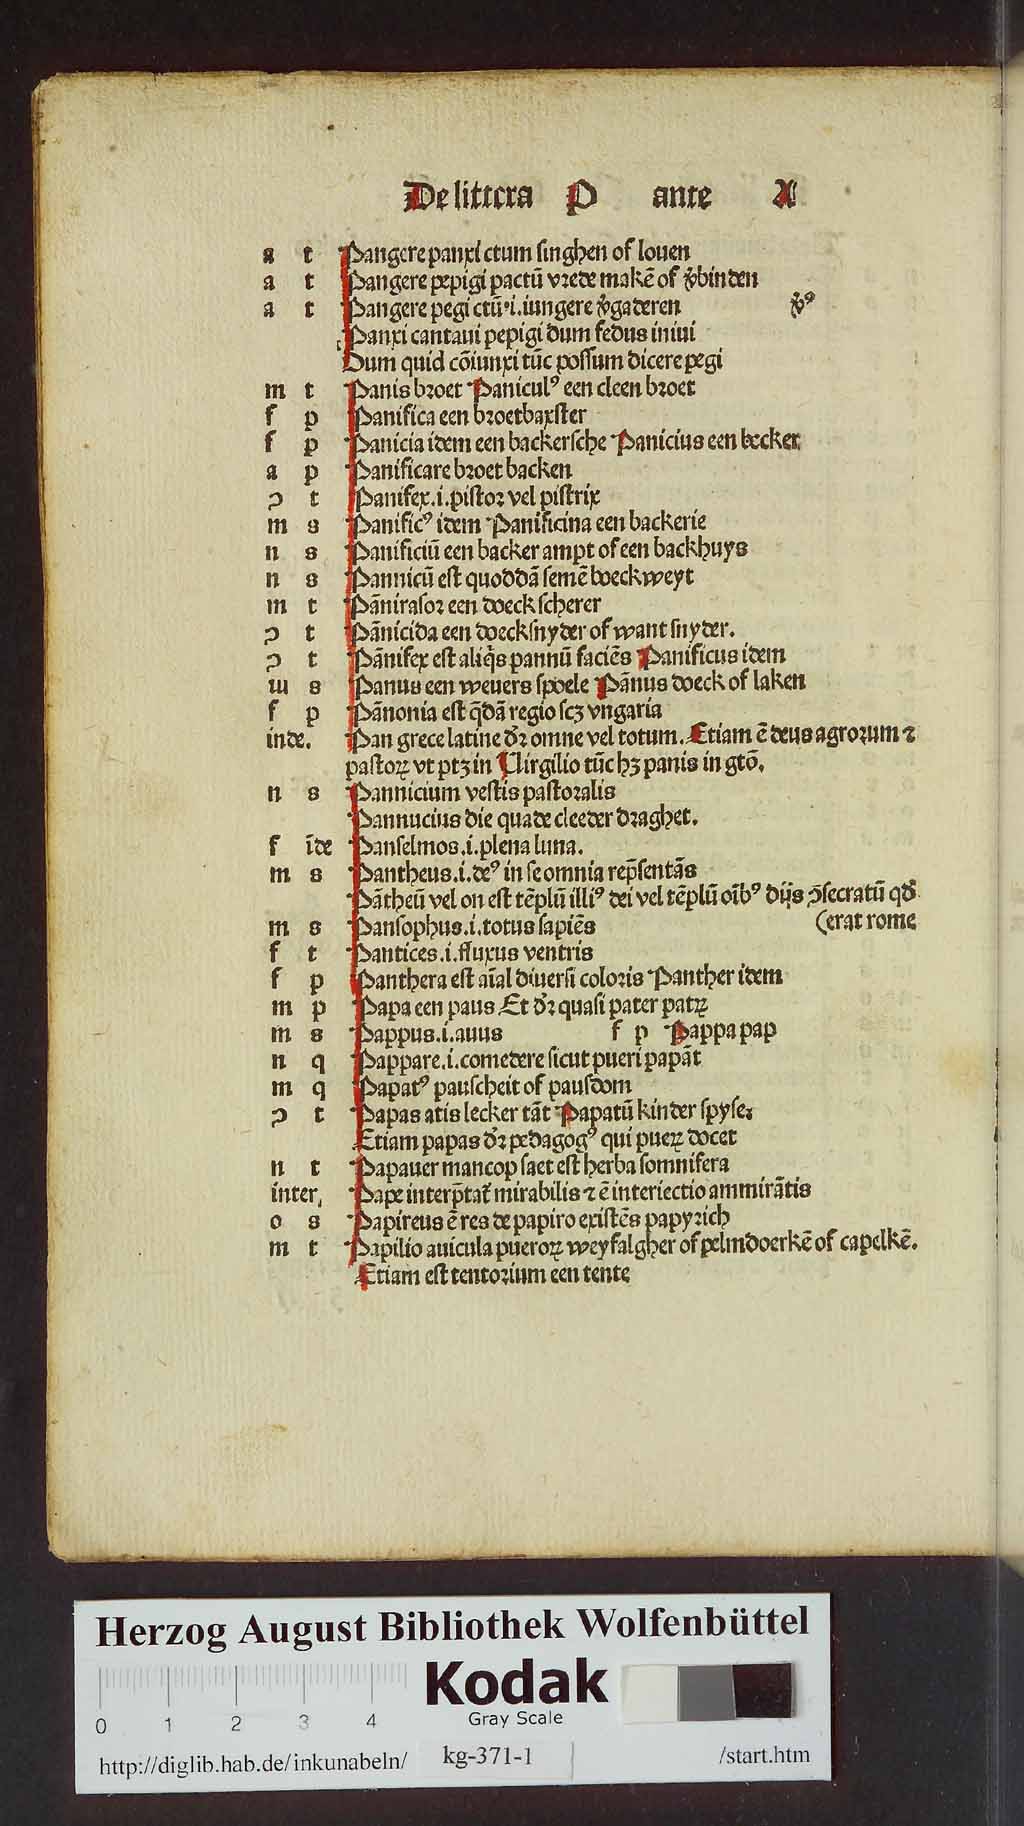 De littera P ante A
a t Pangere panxi ctum singhen of louen
a t Pangere pepigi pactū vrede makē of v̄binden
a t Pangere pegi ctū·i.iungere v̄gaderen v̄ꝰ
Panxi cantaui pepigi dum fedus iniui
Dum quid cōiunxi tūc possum dicere pegi
m t Panis broet Paniculꝰ een cleen broet
f p Panifica een broetbaxster
f p Panicia idem een backersche Panicius een becker
a p Panificare broet backen
ↄ t Panifex.i.pistor vel pistrix
m s Panificꝰ idem Panificina een backerie
n s Panificiū een backer ampt of een backhuys
n s Pannicū est quoddā semē boeckweyt
m t Pānirasor een doeck scherer
ↄ t Pānicida een doecksnyder of want snyder.
ↄ t Pānifex est aliq̄s pannū faciēs Panificus idem
m s Panus een weuers spoele Pānus doeck of laken
f p Pānonia est q̄dā regio scꝫ vngaria
inde. Pan grece latine dr̄ omne vel totum. Etiam ē deus agrorum ⁊
pastoꝝ vt ptꝫ in Virgilio tūc hꝫ panis in gtō.
n s Pannicium vestis pastoralis
Pannucius die quade cleeder draghet.
f īde Panselmos.i.plena luna.
m s Pantheus.i.deꝰ in se omnia rep̄sentās
Pātheū vel on est tēplū illiꝰ dei vel tēplū oībꝰ dijs ↄ̄secratū qd̄
m s Pansophus.i.totus sapiēs (erat rome
f t Pantices.i.fluxus ventris
f p Panthera est aīal diuersi coloris Panther idem
m p Papa een paus Et dr̄ quasi pater patꝝ
m s Pappus.i.auus f p Pappa pap
n q Pappare.i.comedere sicut pueri papāt
m q Papatꝰ pauscheit of pausdom
ↄ t Papas atis lecker tāt Papatū kinder spyse
Etiam papas dr̄ pedagogꝰ qui pueꝝ docet
n t Papauer mancop saet est herba somnifera
inter, Pape interp̄tat᷑ mirabilis ⁊ ē interiectio ammirātis
o s Papireus ē res de papiro existēs papyrich
m t Papilio auicula pueroꝝ weyfalgher of pelmdoerkē of capelkē.
Etiam est tentorium een tente
Herzog August Bibliothek Wolfenbüttel
0 1 2 3 4
Kodak
Gray Scale
http://diglib.hab.de/inkunabeln/ kg-371-1 /start.htm